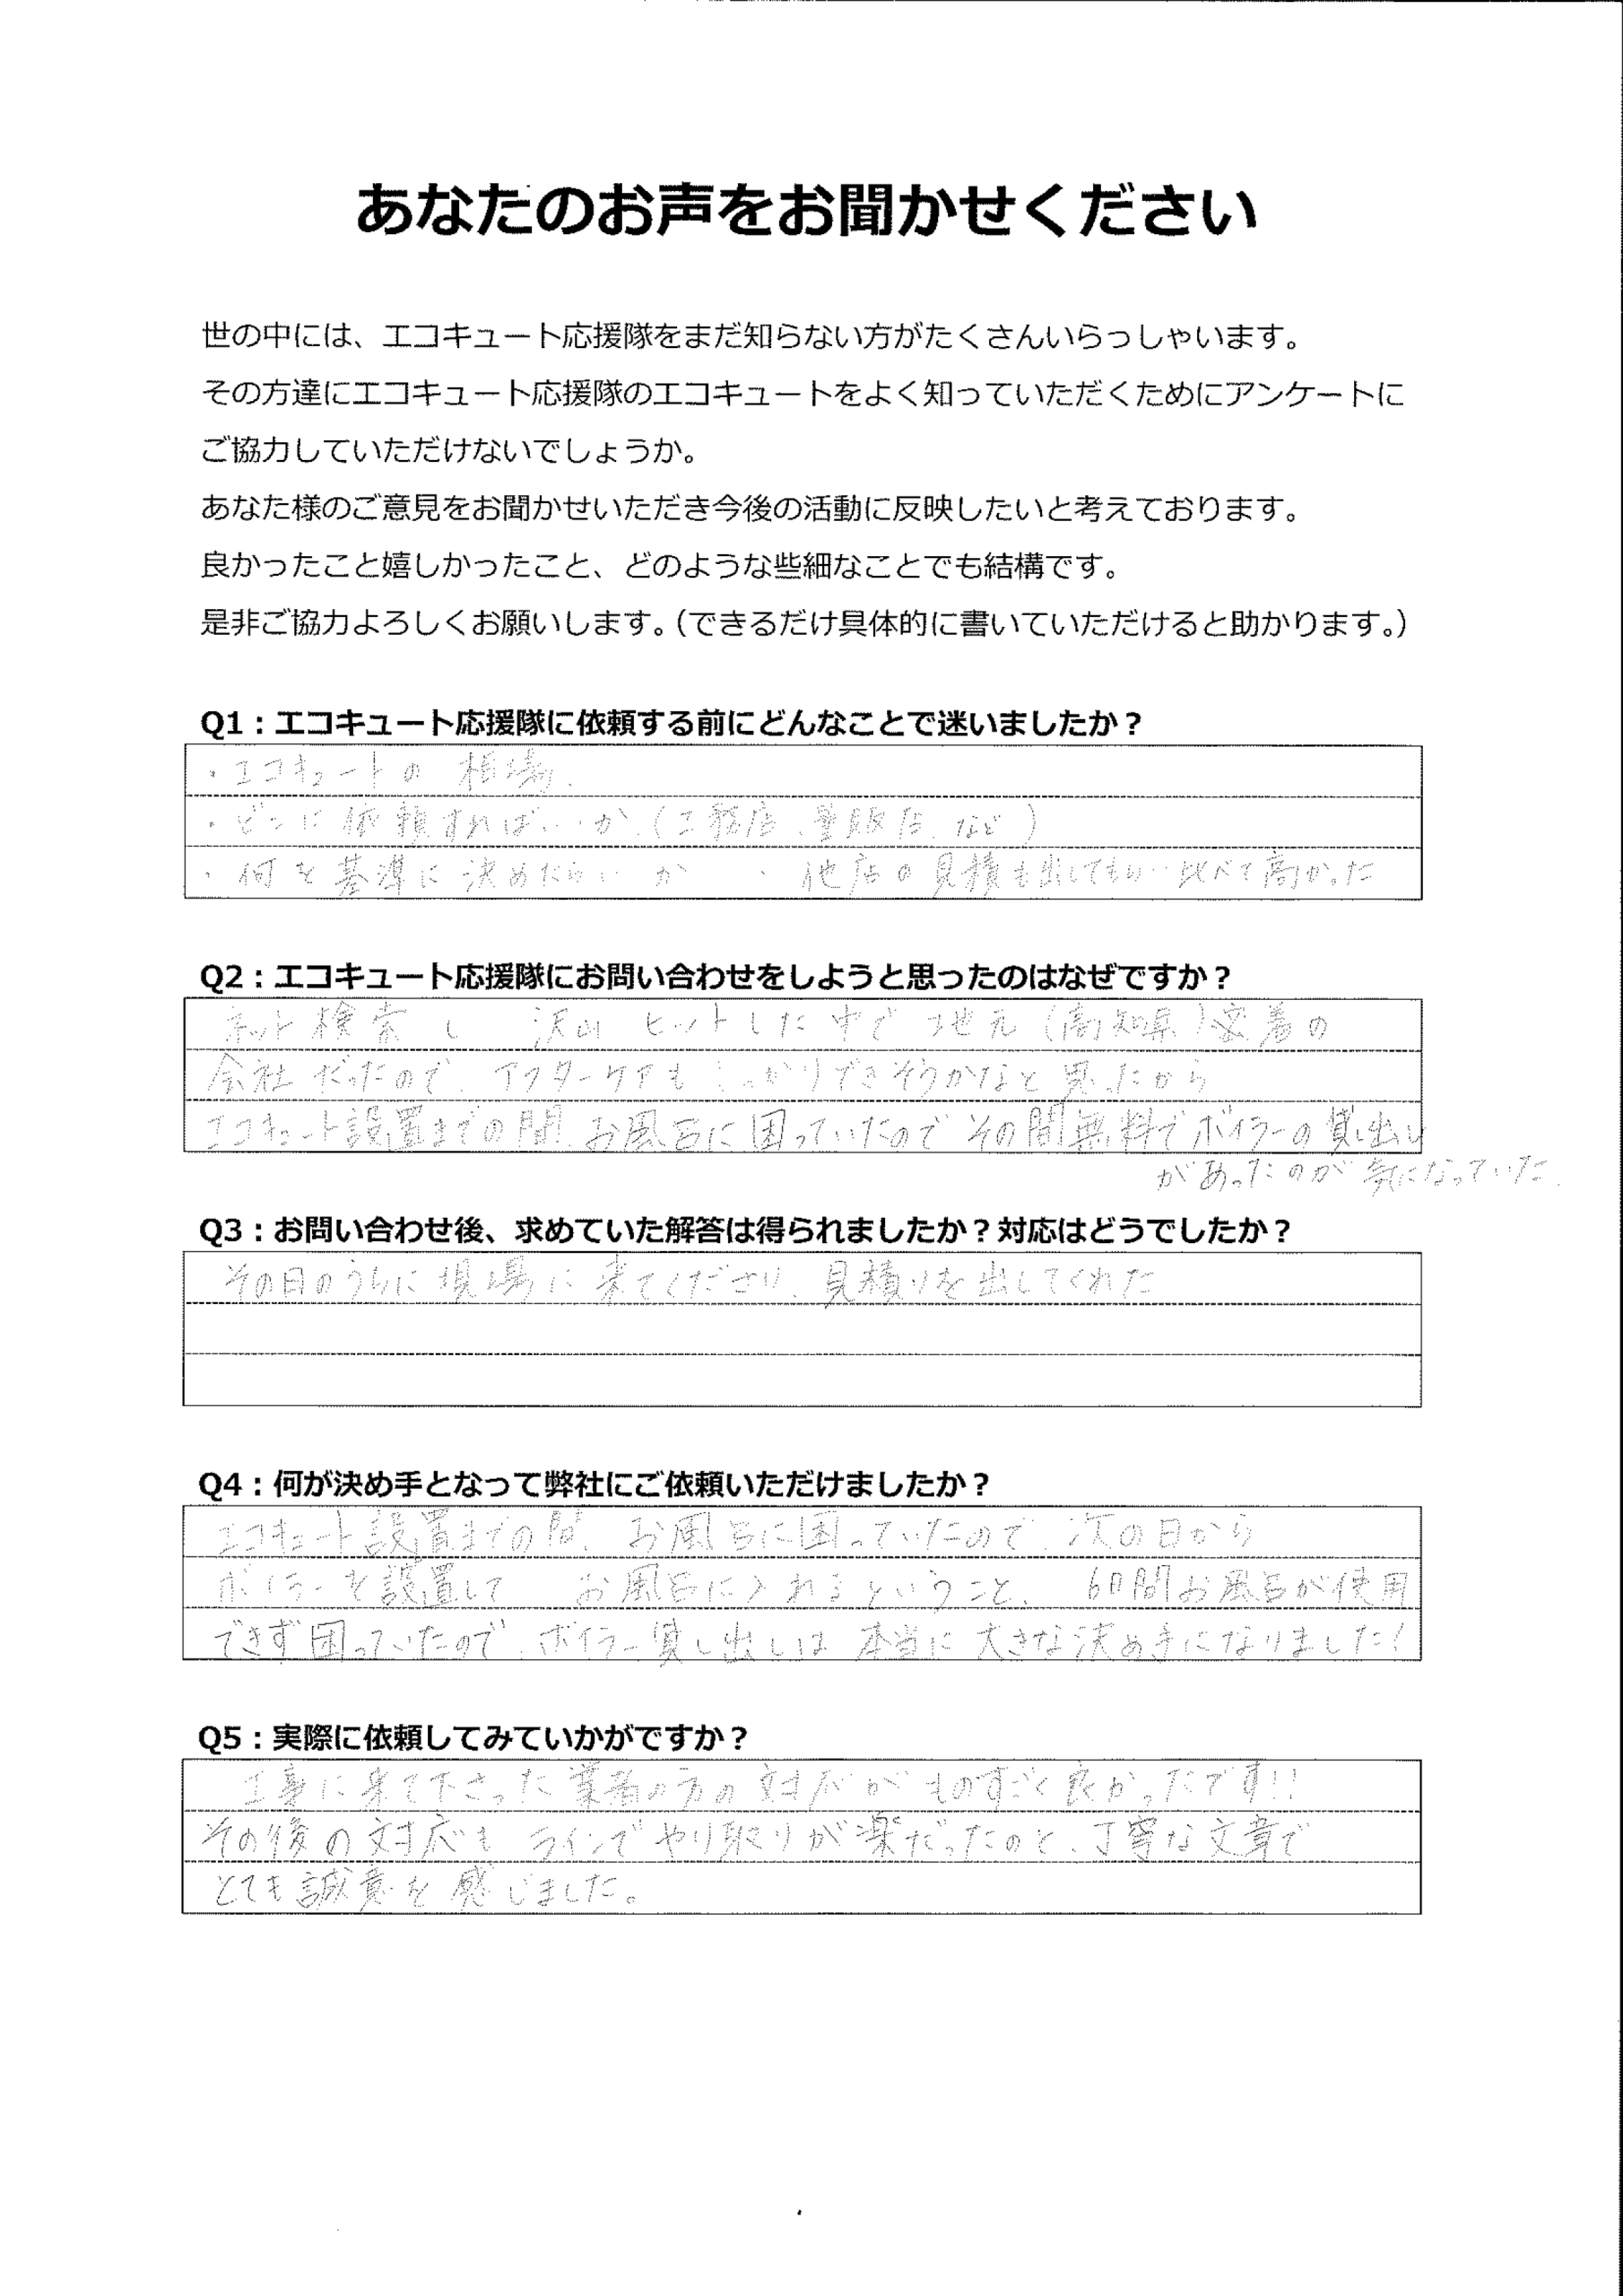 あなたのお声をお聞かせください
世の中には、エコキュート応援隊をまだ知らない方がたくさんいらっしゃいます。
その方達にエコキュート応援隊のエコキュートをよく知っていただくためにアンケートに
ご協力していただけないでしょうか。
あなた様のご意見をお聞かせいただき今後の活動に反映したいと考えております。
良かったこと嬉しかったこと、どのような些細なことでも結構です。
是非ご協力よろしくお願いします。（できるだけ具体的に書いていただけると助かります。）
Q1：エコキュート応援隊に依頼する前にどんなことで迷いましたか？
・エコキュートの 相場.
・どこに依頼すればいいか、（工務店、量販店、など）
・何を基準に決めたらいいか ・他店の見積も出してもらい比べて高かった
Q2：エコキュート応援隊にお問い合わせをしようと思ったのはなぜですか？
ネット検索し 沢山ヒットした中で 地元（高知県）密着の
会社だったので、アフターケアもしっかりできそうかなと思ったから
エコキュート設置までの間、お風呂に困っていたのでその間無料でボイラーの貸し出し
があったのが気になっていた.
Q3：お問い合わせ後、求めていた解答は得られましたか？対応はどうでしたか？
その日のうちに現場に来てくださり、見積りを出してくれた
Q4：何が決め手となって弊社にご依頼いただけましたか？
エコキュート設置までの間、お風呂に困っていたので、次の日から
ボイラーを設置して お風呂に入れるということ、6日間お風呂が使用
できず困っていたので、ボイラー貸し出しは本当に大きな決め手になりました！
Q5：実際に依頼してみていかがですか？
工事に来て下さった業者の方の対応がものすごく良かったです!!
その後の対応もラインでやり取りが楽だったのと、丁寧な文章で
とても誠意を感じました。